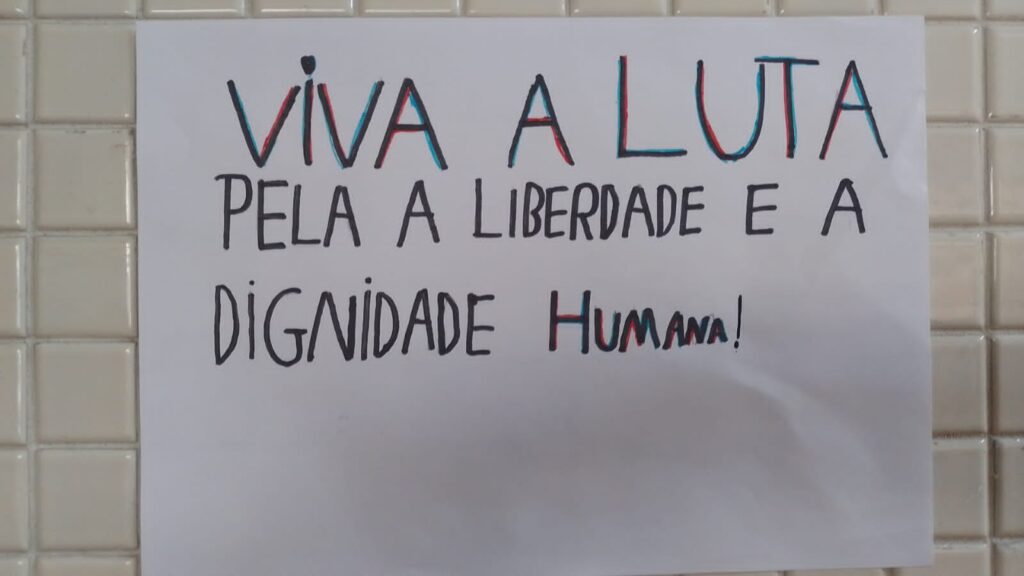 VIVA A LUTA
PELA A LIBERDADE E A
DIGNIDADE HUMANA!